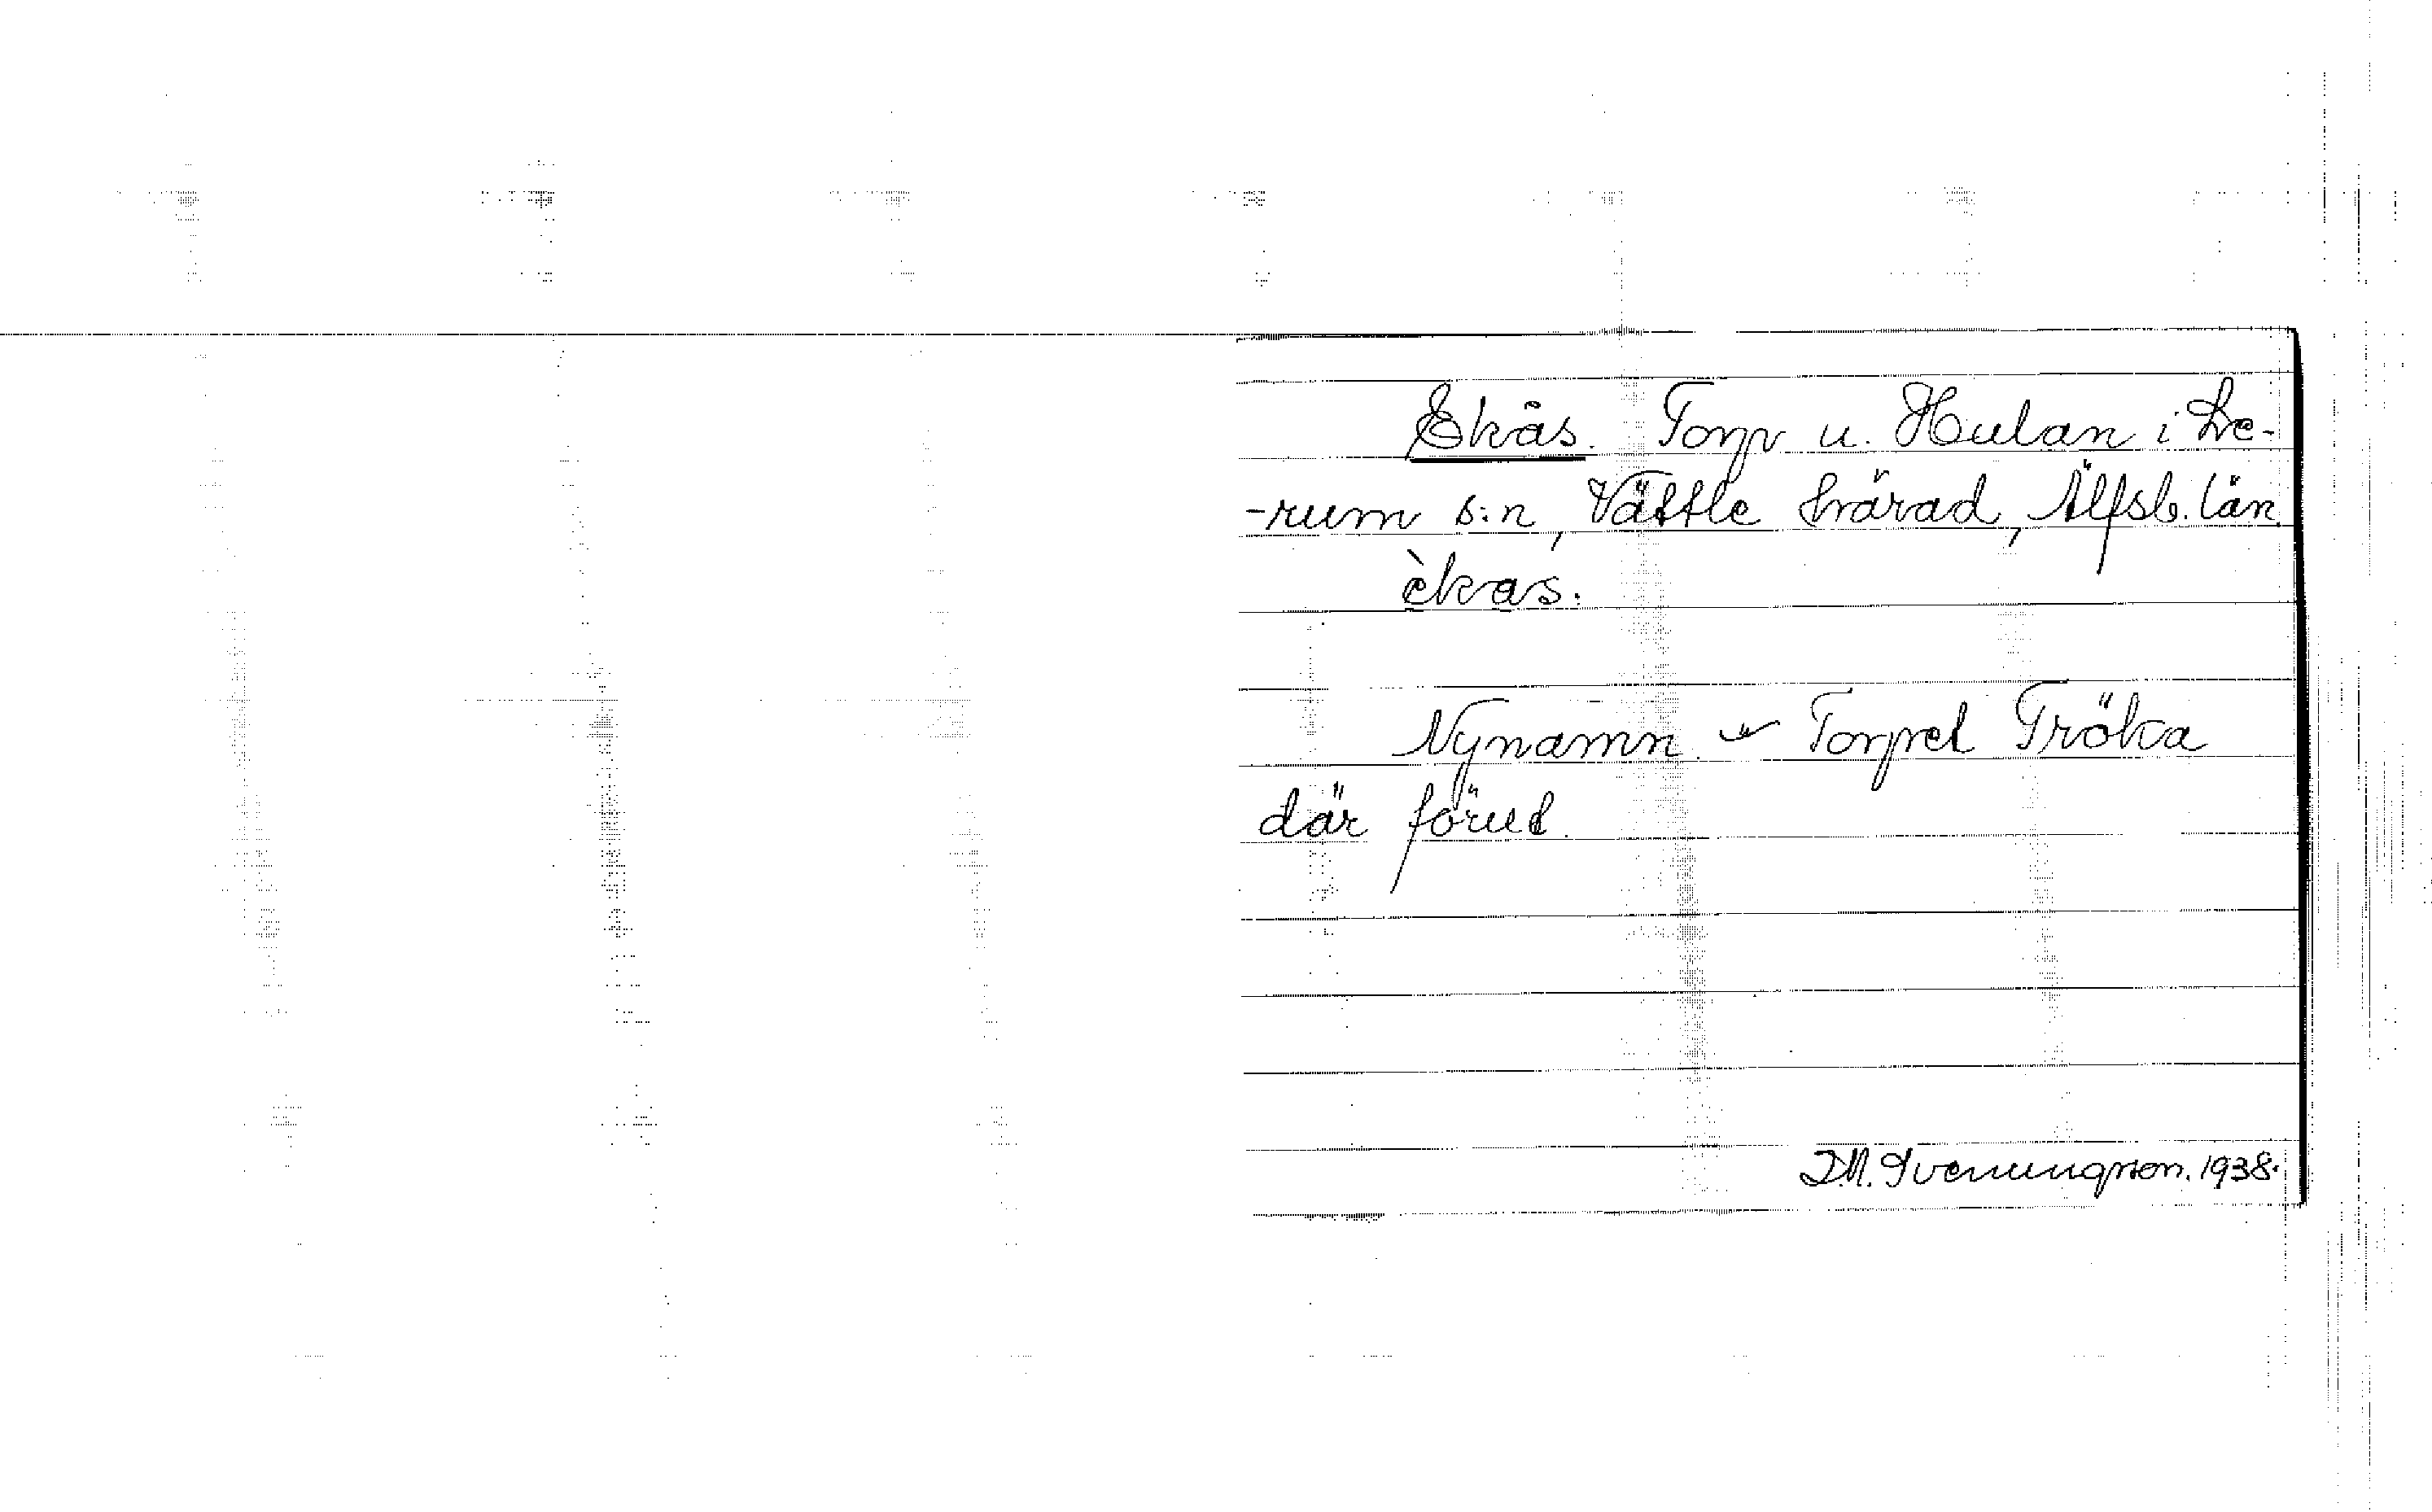 Ekås. Torp u. Hulan i Le-
-rum s:n, Vättle härad, Älfsb. län.
èkas.
Nynamn. Torpet Tröka
där förut.
D.M. Svenungsson. 1938.